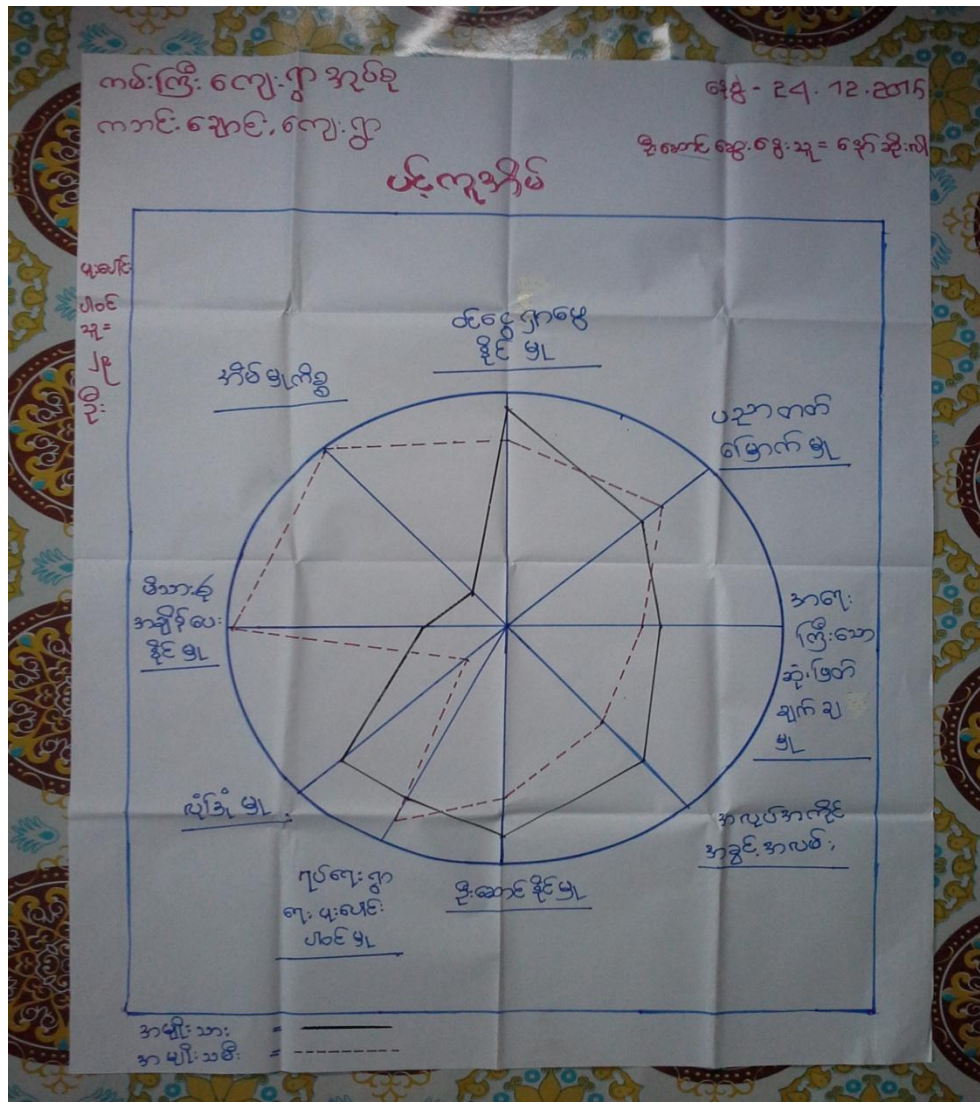 ကမ်းကြီး ကျေးရွာ အုပ်စု
ကဘင်းချောင်းကျေးရွာ
နေ့စွဲ - 24.12.2015
ဦးဆောင် ဆွေးနွေးသူ = နော်ဆိုးလီ
ပင့်ကူအိမ်
ပူးပေါင်း
ပါဝင်
သူ =
၂၉
ဦး
ဝင်ငွေ ရှာဖွေ
နိုင် မှု
ပညာ တတ်
မြောက် မှု
အရေး
ကြီးသော
ဆုံးဖြတ်
ချက် ချ
မှု
အလုပ်အကိုင်
အခွင့်အလမ်း
ဦးဆောင်နိုင်မှု
ရပ်ရေး ရွာ
ရေး ပူးပေါင်း
ပါဝင် မှု
လုံခြုံ မှု
မိသားစု
အချိန်ပေး
နိုင် မှု
အိမ်မှုကိစ္စ
အမျိုးသား =
အမျိုးသမီး =